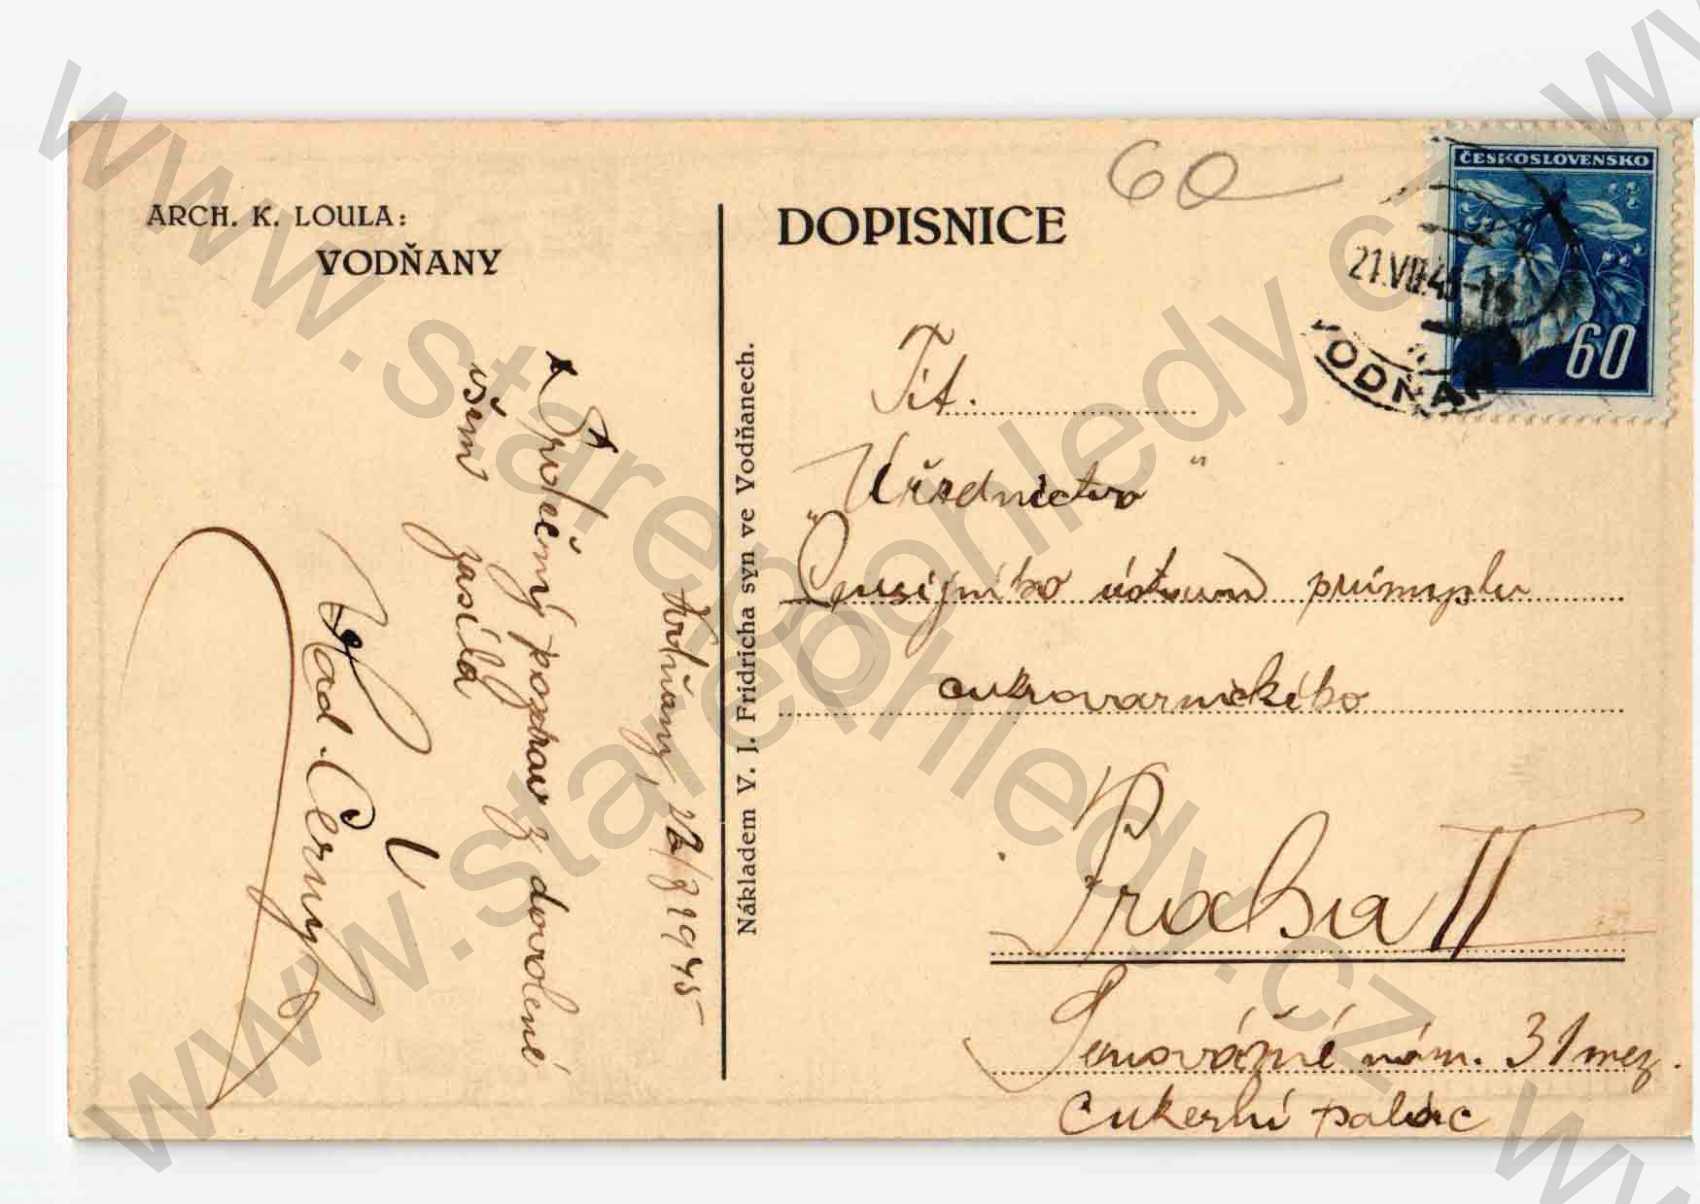 ARCH. K. LOULA:
VODŇANY
Srdečný pozdrav z dovolené
všem zasílá
Vlad. Černý
Vodňany,
1945
Nákladem V. J. Fridricha syn ve Vodňanech.
DOPISNICE
60
ČESKOSLOVENSKO
60
21.VII.45-
VODŇAN
Tit.
"Úřednictvo"
Pensijního ústavu průmyslu
cukrovarnického
Praha II
Senovážné nám. 31 mez.
Cukerní palác
www.starepohledy.cz
www.starepohledy.cz